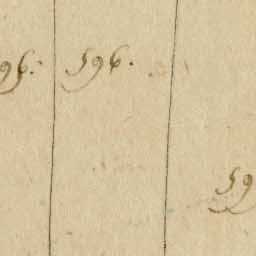 96. 596.
59